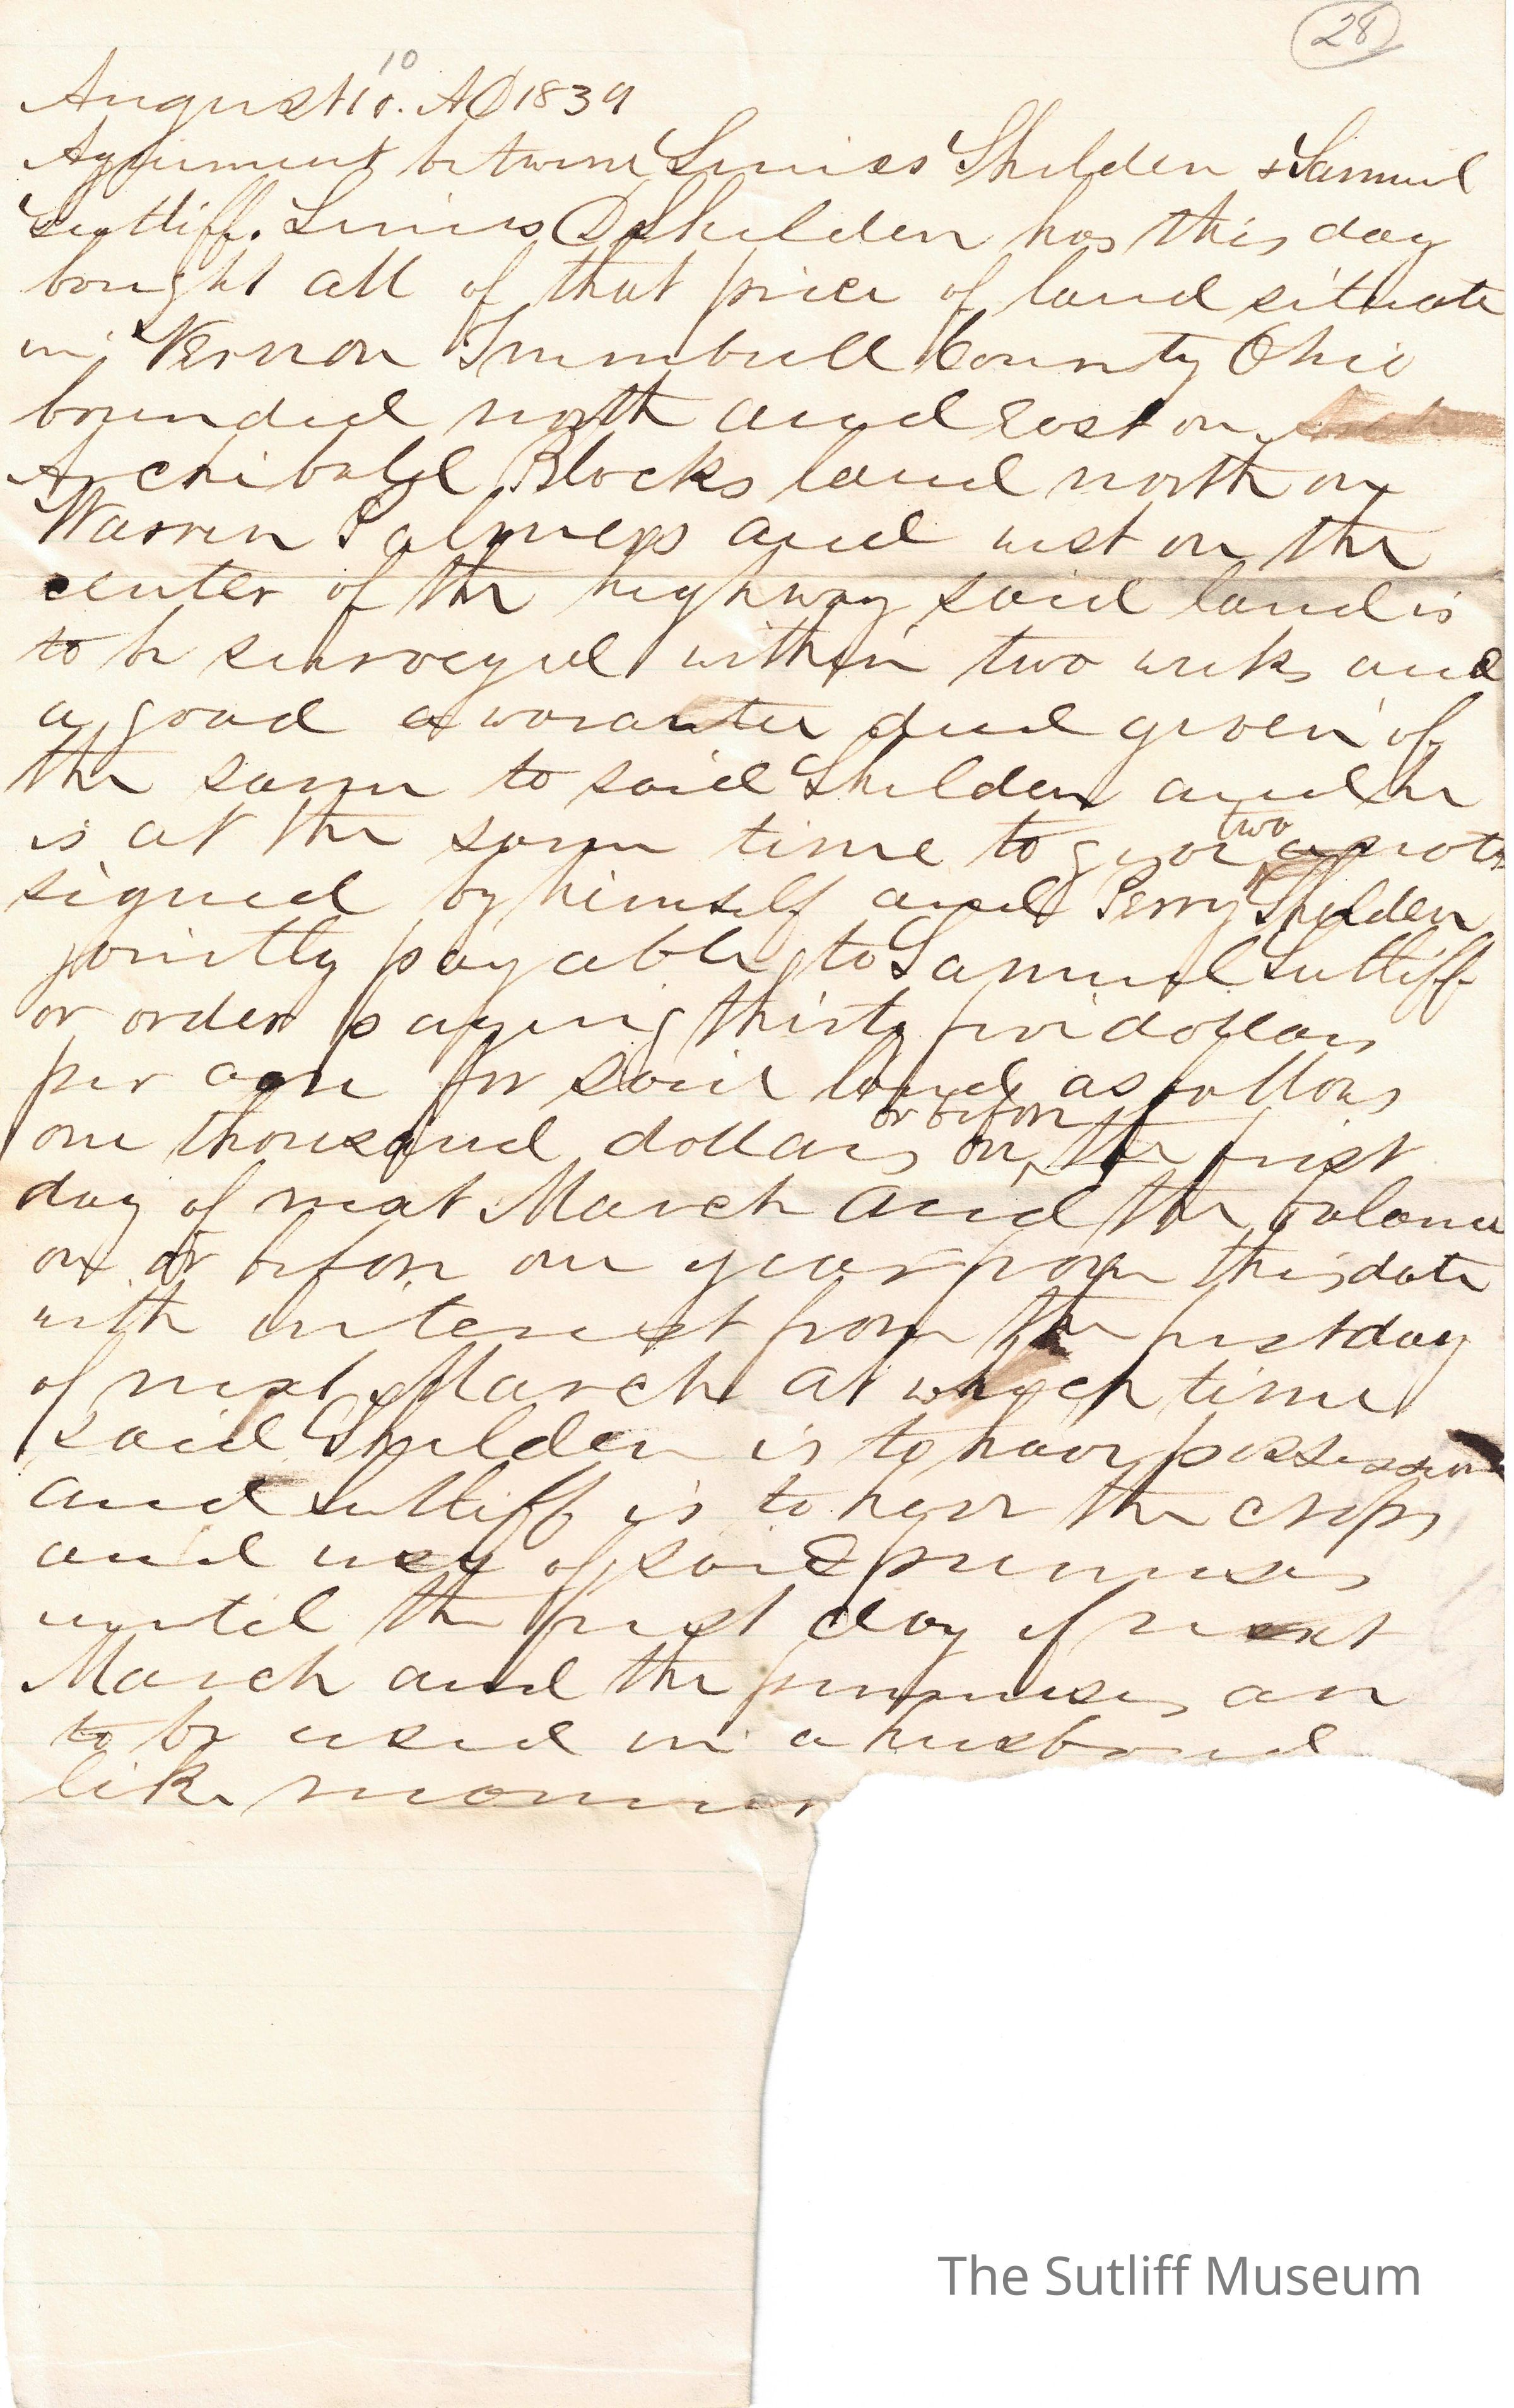 28
10
August 10. AD 1839
Agreement between Linius Shelden & Samuel
Sutliff. Linius D Shelden has this day
bought all of that piece of land situate
in Vernon Trumbull County Ohio
bounded north and East on
Archibald Blocks land north on
Warren Palmers and west on the
center of the highway said land is
to be surveyed within two weeks and
a good a waranter deed given of
the same to said Shelden and he
is at the same time to give two a note
signed by himself and Perry Shelden
jointly payable to Samuel Sutliff
or order paying thirty five dollars
per acre for said land as follows
one thousand dollars on or before the first
day of next March and the balance
on or before one year from this date
with interest from the first day
of next March at which time
said Shelden is to have possession
and Sutliff is to have the crops
and use of said premises
until the first day of next
March and the premises are
to be used in a husband
like manner
The Sutliff Museum